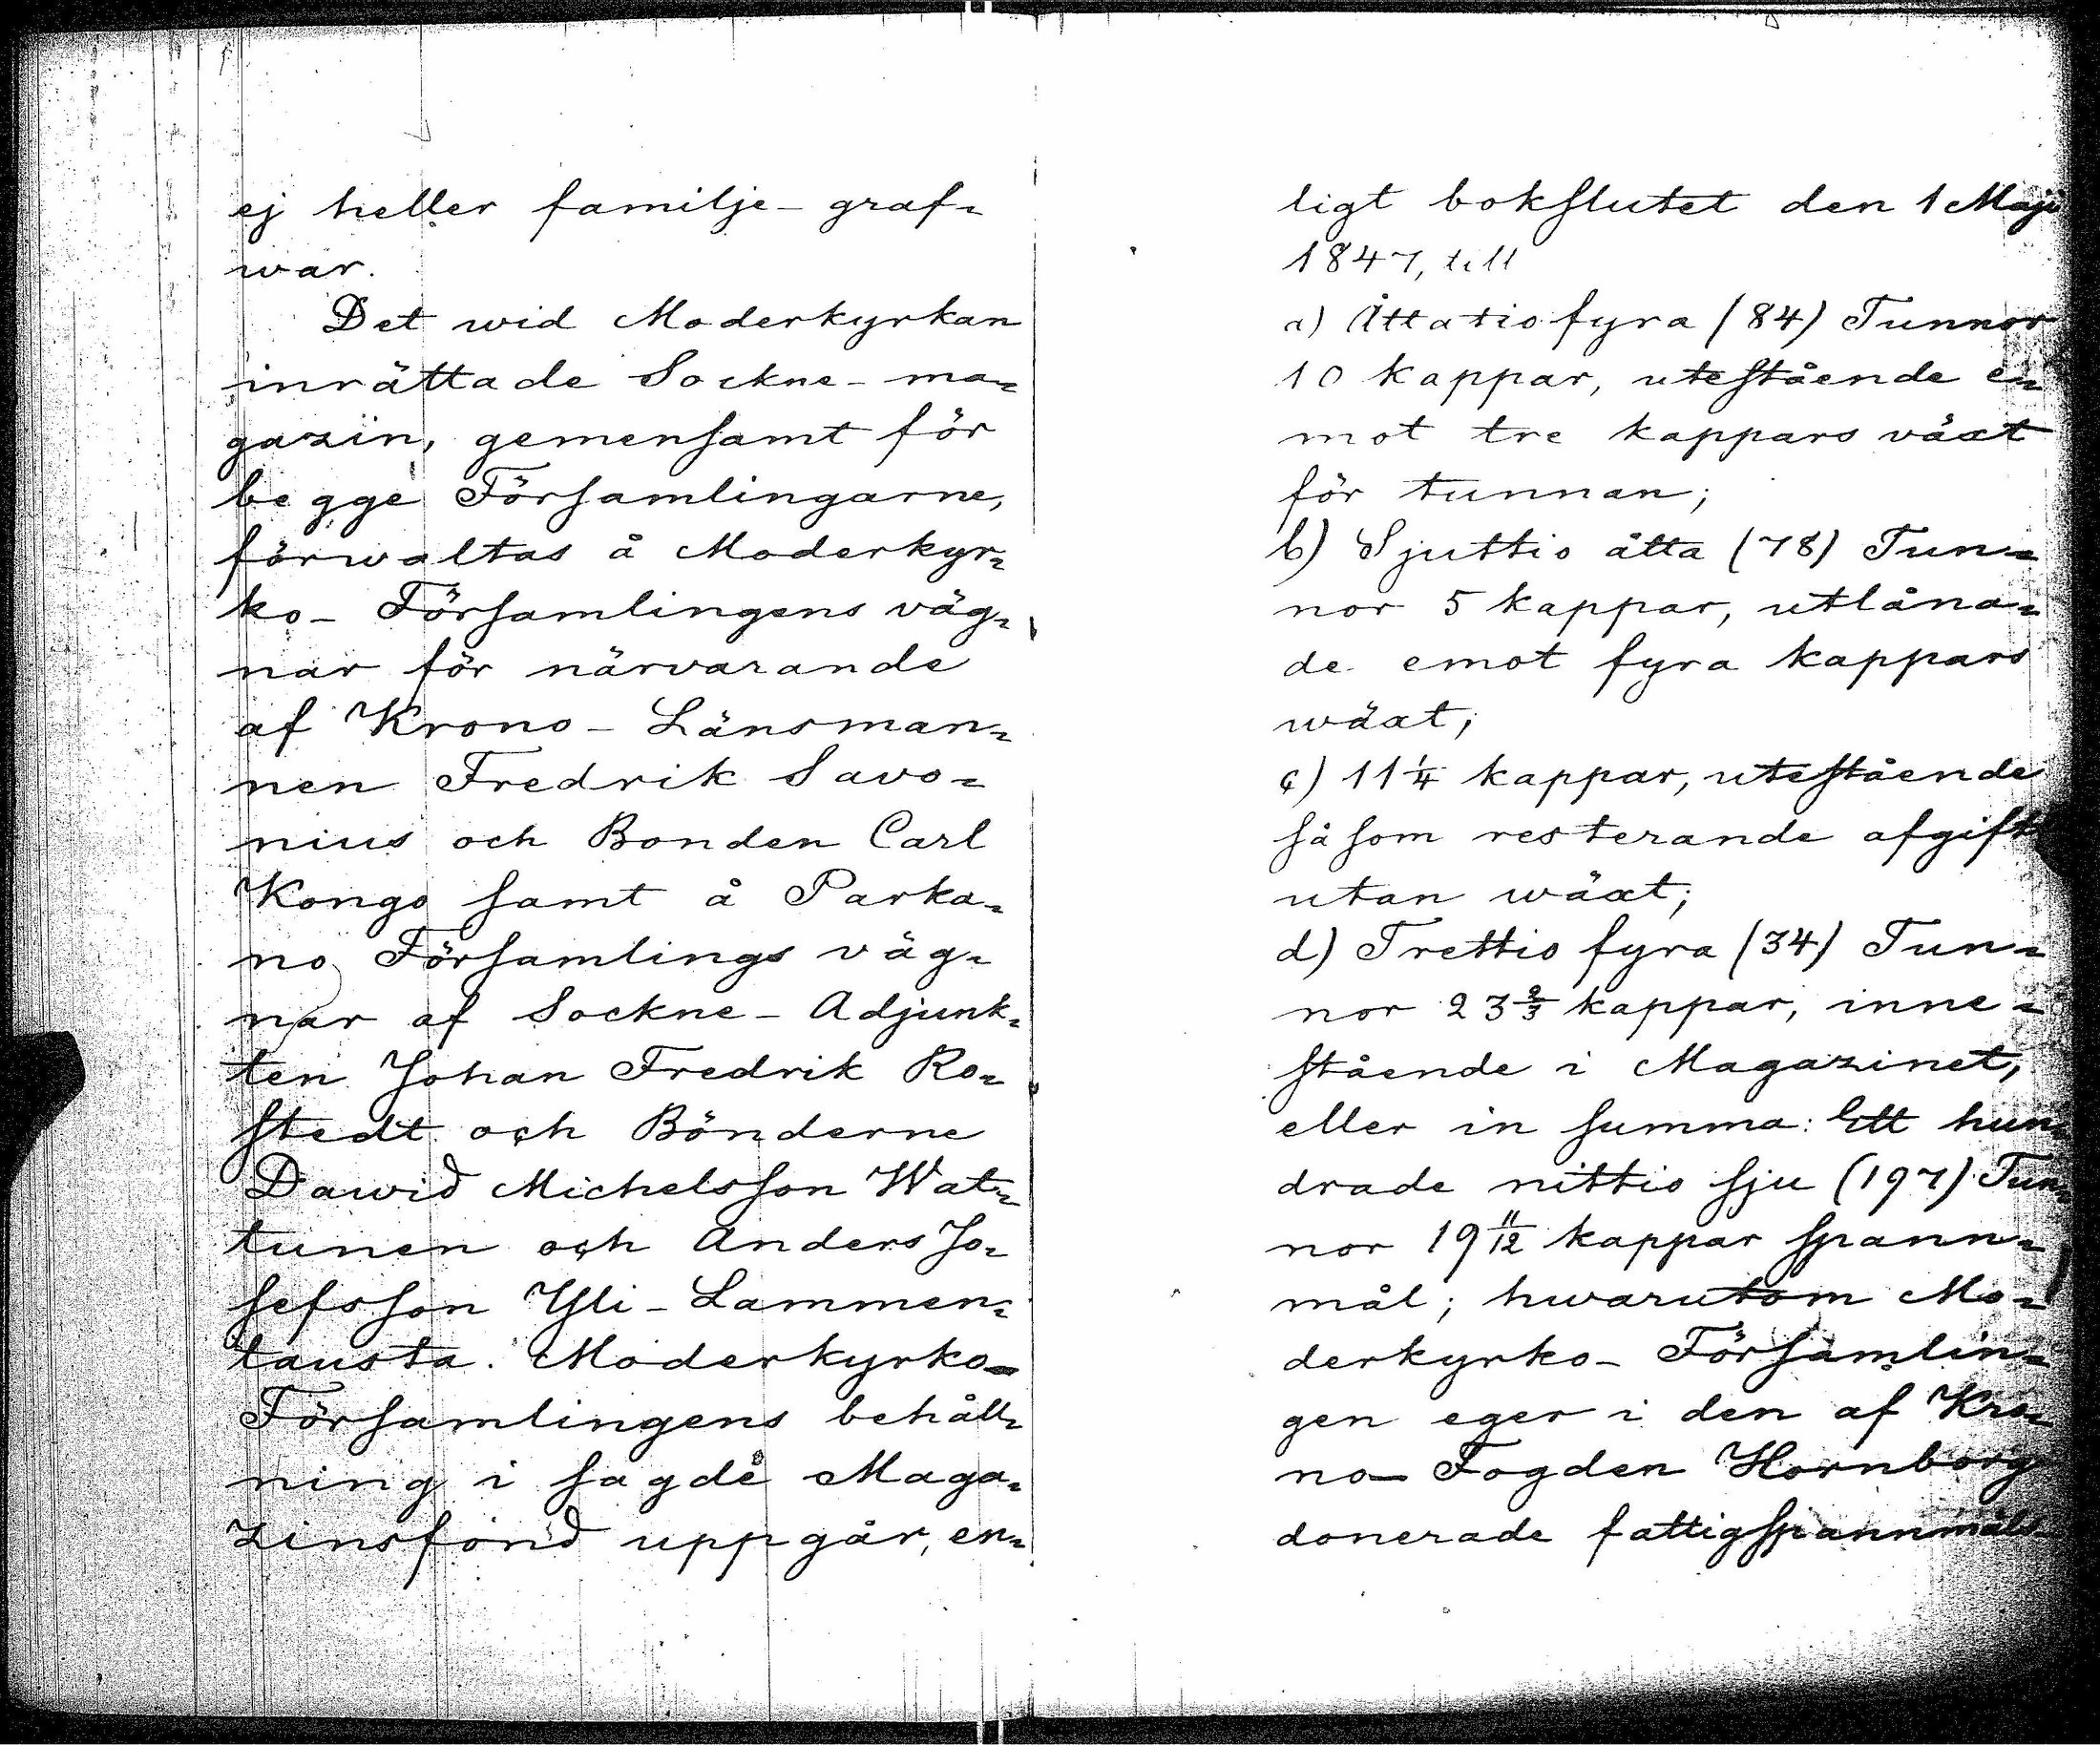 ej heller familje- graf=
war.
Det wid Moderkyrkan
inrättade Sockne- ma=
gazin, gemensamt för
begge Församlingarne,
förwaltas å Moderkyr=
ko- Församlingens väg=
nar för närvarande
af Krono- Länsman=
nen Fredrik Savo=
nius och Bonden Carl
Kongo samt å Parka=
no Församlings väg=
nar af Sockne- Adjunk=
ten Johan Fredrik Ro=
stedt och Bönderne
Dawid Michelsson Wat=
tunen och Anders Jo=
sefsson Yli- Lammen=
tausta. Moderkyrko-
Församlingens behåll=
ning i sagde Maga=
zinsfond uppgår, en=
ligt bokslutet den 1 Maji
1847, till
a) Åttatiofyra (84) Tunnor
10 kappar, utestående e=
mot tre kappars växt
för tunnan;
b) Sjuttio åtta (78) Tun=
nor 5 kappar, utlåna=
de emot fyra kappars
wäxt;
c) 11 1/4 kappar, utestående
såsom resterande afgift
utan wäxt;
d) Trettio fyra (34) Tun=
nor 23 2/3 kappar, inne=
stående i Magazinet,
eller in summa: Ett hun=
drade nittio sju (197) Tun=
nor 19 11/12 kappar spann=
mål; hwarutom Mo=
derkyrko- Församlin=
gen eger i den af Kro=
no- Fogden Hornborg
donerade fattigspannmåls-